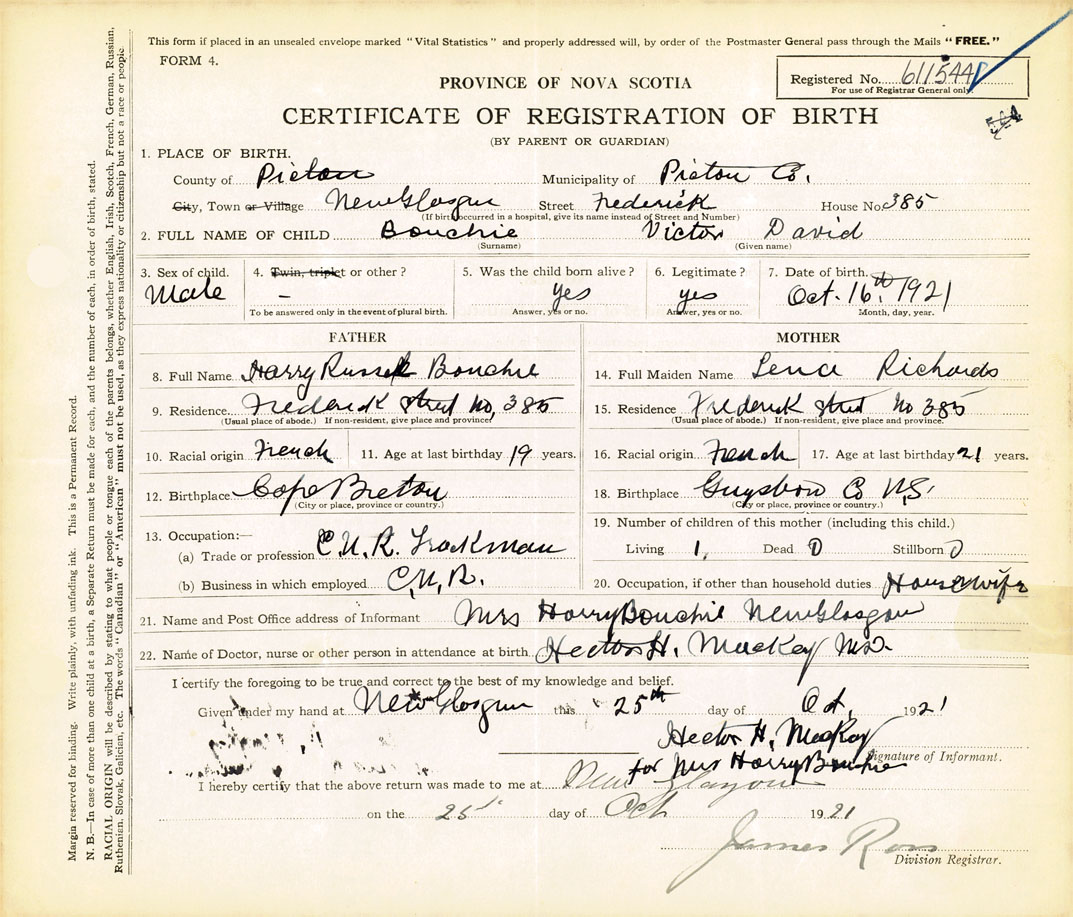 This form if placed in an unsealed envelope marked "Vital Statistics" and properly addressed will, by order of the Postmaster General pass through the Mails "FREE."
FORM 4.
Registered No. 611544
For use of Registrar General only.
PROVINCE OF NOVA SCOTIA
CERTIFICATE OF REGISTRATION OF BIRTH
(BY PARENT OR GUARDIAN)
1. PLACE OF BIRTH.
County of Pictou Municipality of Pictou Co.
City, Town or Village New Glasgow Street Frederick House No. 385
(If birth occurred in a hospital, give its name instead of Street and Number)
2. FULL NAME OF CHILD Bouchie Victor David
(Surname) (Given name)
3. Sex of child. 4. Twin, triplet or other? 5. Was the child born alive? 6. Legitimate? 7. Date of birth.
Male – yes yes Oct. 16th. 1921
To be answered only in the event of plural birth. Answer, yes or no. Answer, yes or no. Month, day, year.
FATHER MOTHER
8. Full Name Harry Russell Bouchie 14. Full Maiden Name Lena Richards
9. Residence Frederick street No, 385 15. Residence Frederick street No 385
(Usual place of abode.) If non-resident, give place and province (Usual place of abode.) If non-resident, give place and province.
10. Racial origin French 11. Age at last birthday 19 years. 16. Racial origin French 17. Age at last birthday 21 years.
12. Birthplace Cape Breton 18. Birthplace Guysboro Co N.S.
(City or place, province or country.) (City or place, province or country.)
13. Occupation:— 19. Number of children of this mother (including this child.)
(a) Trade or profession C.N.R. Trackman Living 1, Dead 0 Stillborn 0
(b) Business in which employed C.N.R. 20. Occupation, if other than household duties Housewife
21. Name and Post Office address of Informant Mrs Harry Bouchie New Glasgow
22. Name of Doctor, nurse or other person in attendance at birth. Hector H. MacKay M.D.
I certify the foregoing to be true and correct to the best of my knowledge and belief.
Given under my hand at New Glasgow this 25th day of Oct. 1921
Hector H. MacKay
for Mrs Harry Bouchie Signature of Informant.
I hereby certify that the above return was made to me at New Glasgow
on the 25 day of Oct 1921
James Ross
Division Registrar.
Margin reserved for binding. Write plainly, with unfading ink. This is a Permanent Record.
N. B.—In case of more than one child at a birth, a Separate Return must be made for each, and the number of each, in order of birth, stated.
RACIAL ORIGIN will be described by stating to what people or tongue each of the parents belongs, whether English, Irish, Scotch, French, German, Russian,
Ruthenian, Slovak, Galician, etc. The words "Canadian" or "American" must not be used, as they express nationality or citizenship but not a race or people